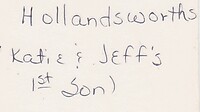 Hollandsworths
Katie & Jeff's
1st Son)